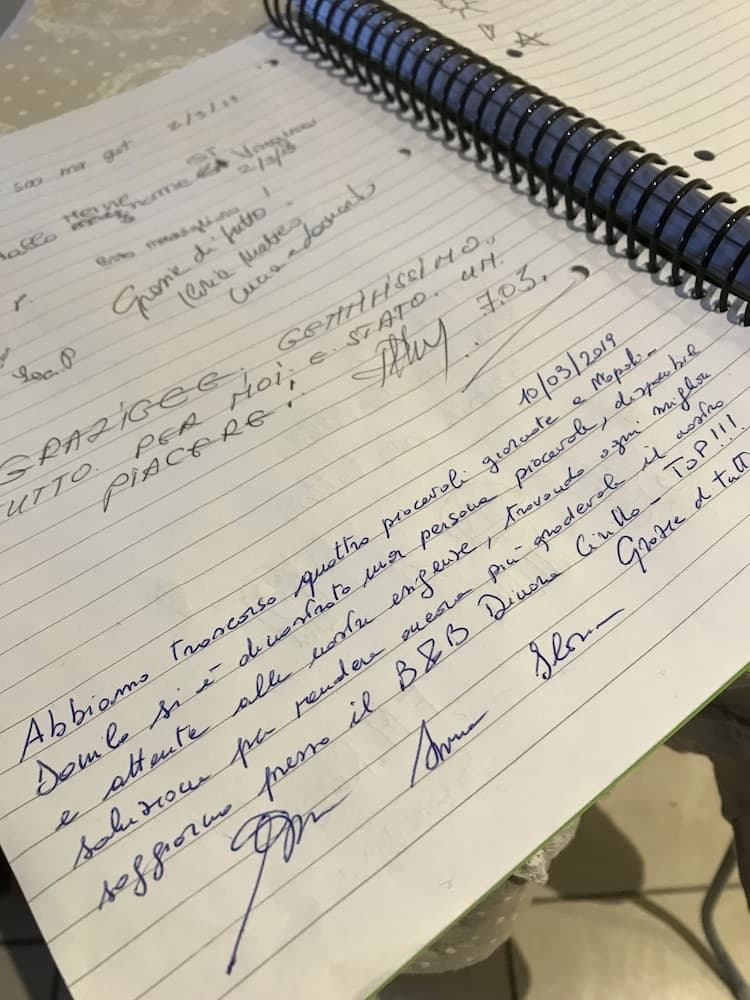 soo ma got 2/3/19
ST
2/3/19
Grazie di tutto
Ilaria Matteo
GRAZIGEE, GENTILISSIMO,
UTTO. PER MOI, E STATO. UN.
PIACERE! 7.03.
10/03/2019
Abbiamo trascorso quattro piacevoli giornate a Napoli.
Danilo si è dimostrato una persona piacevole, disponibile
e attenta alle nostre esigenze, trovando ogni miglior
soluzione per rendere ancora più gradevole il nostro
soggiorno presso il B&B Dimora Cirillo - TOP!!!
Grazie di tutto
Anna